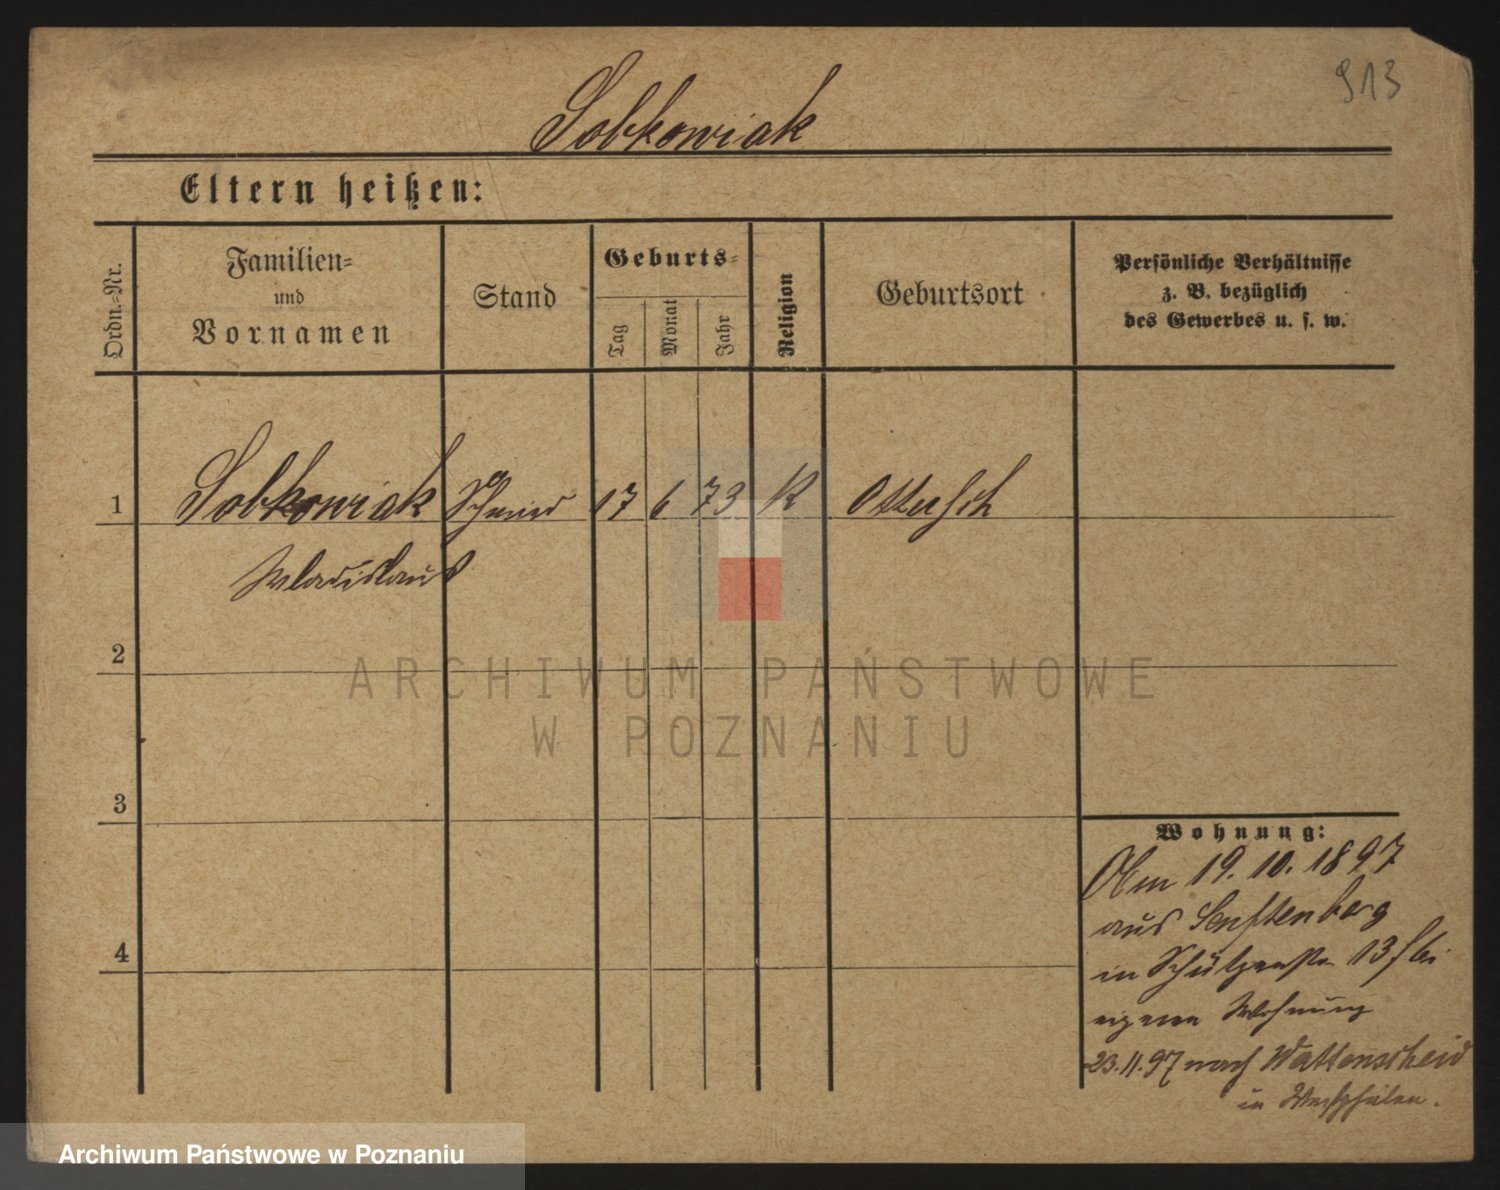 913
Sobkowiak
Eltern heißen:
Ordn.-Nr.
Familien-
und
Vornamen
Stand
Geburts-
Tag
Monat
Jahr
Religion
Geburtsort
Persönliche Verhältnisse
z. B. bezüglich
des Gewerbes u. s. w.
1 Sobkowiak Schmied 17 6 73 K Ottusch
Wladislaus
2
ARCHIWUM PAŃSTWOWE
W POZNANIU
3
Wohnung:
19. 10. 1897
aus Senftenberg
in Schützenstr 13
eigene Wohnung
23.11.97 nach Wattenscheid
in Westphalen.
4
Archiwum Państwowe w Poznaniu